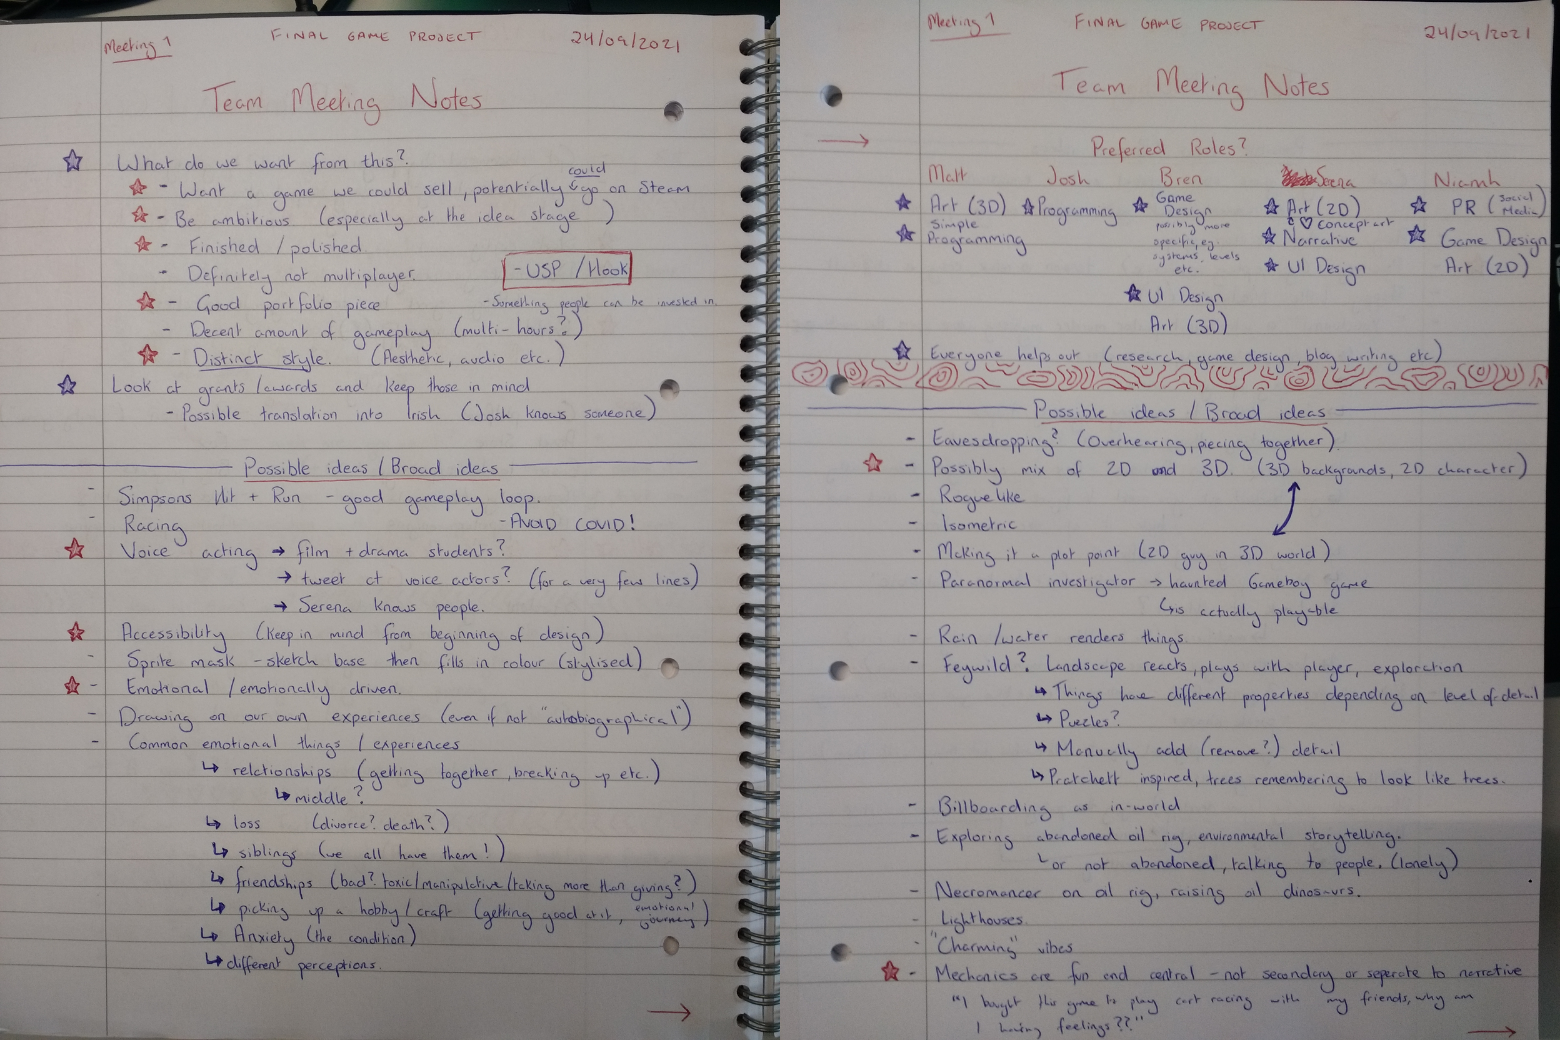 Meeting 1 FINAL GAME PROJECT 24/09/2021
Team Meeting Notes
What do we want from this?
could
- Want a game we could sell, potentially go on Steam
- Be ambitious (especially at the idea stage)
- Finished / polished
- Definitely not multiplayer.
- USP / Hook
- Good portfolio piece
- Something people can be invested in.
- Decent amount of gameplay (multi-hours?)
- Distinct style. (Aesthetic, audio etc.)
Look at grants / awards and keep those in mind
- Possible translation into Irish (Josh knows someone)
Possible ideas / Broad ideas
- Simpsons Hit + Run - good gameplay loop.
- Racing
- AVOID COVID!
Voice acting → film + drama students?
→ tweet at voice actors? (for a very few lines)
→ Serena knows people.
Accessibility (keep in mind from beginning of design)
- Sprite mask - sketch base then fills in colour (stylised)
- Emotional / emotionally driven.
- Drawing on our own experiences (even if not "autobiographical")
- Common emotional things / experiences
↳ relationships (getting together, breaking up etc.)
↳ middle?
↳ loss (divorce? death?)
↳ siblings (we all have them!)
↳ friendships (bad? toxic/manipulative/taking more than giving?)
↳ picking up a hobby / craft (getting good at it, emotional journey)
↳ Anxiety (the condition)
↳ different perceptions.
→
Meeting 1 FINAL GAME PROJECT 24/09/2021
Team Meeting Notes
→
Preferred Roles?
Matt Josh Bren Seena Niamh
Art (3D)
Simple
Programming
Programming
Game
Design
possibly more
specific, eg.
systems, levels
etc.
UI Design
Art (3D)
Art (2D)
& ♡ concept art
Narrative
UI Design
PR (Social Media)
Game Design
Art (2D)
Everyone helps out (research, game design, blog writing etc)
Possible ideas / Broad ideas
- Eavesdropping? (Overhearing, piecing together)
- Possibly mix of 2D and 3D. (3D backgrounds, 2D character)
- Roguelike
- Isometric
- Making it a plot point (2D guy in 3D world)
- Paranormal investigator → haunted Gameboy game
↳ is actually playable
- Rain / water renders things
- Feywild? Landscape reacts, plays with player, exploration
↳ Things have different properties depending on level of detail
↳ Puzzles?
↳ Manually add (remove?) detail
↳ Pratchett inspired, trees remembering to look like trees.
- Billboarding as in-world
- Exploring abandoned oil rig, environmental storytelling.
↳ or not abandoned, talking to people. (lonely)
- Necromancer on oil rig, raising oil dinosaurs.
- Lighthouses
- "Charming" vibes
- Mechanics are fun and central - not secondary or seperate to narrative
"I bought this game to play cart racing with my friends, why am
I having feelings??"
→